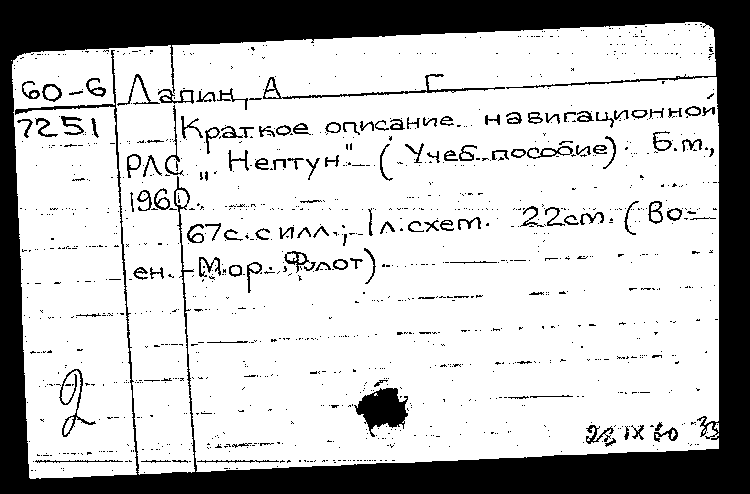 60-6 Лапин, А Г
7251 Краткое описание навигационной
РЛС „Нептун" (Учеб. пособие). Б.м.,
1960.
67с. с илл.; 1л.схет. 22см. (Во-
ен.-Мор. Флот).
2
23 IX 60